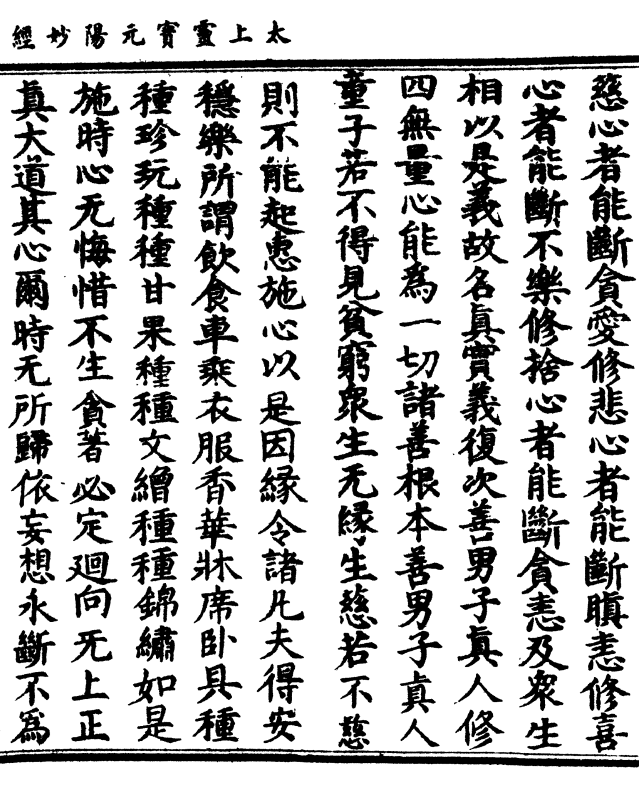 太上靈寳元陽妙經
慈心者能斷貪愛修悲心者能斷瞋恚修喜
心者能斷不樂修捨心者能斷貪恚及衆生
相以是義故名真實義復次善男子真人修
四無量心能為一切諸善根本善男子真人
童子若不得見貧窮衆生无緣生慈若不慈
則不能起惠施心以是因緣令諸凡夫得安
穩樂所謂飲食車乘衣服香華牀席卧具種
種珍玩種種甘果種種文繒種種錦繡如是
施時心无悔惜不生貪著必定廻向无上正
真大道其心爾時无所歸依妄想永斷不為